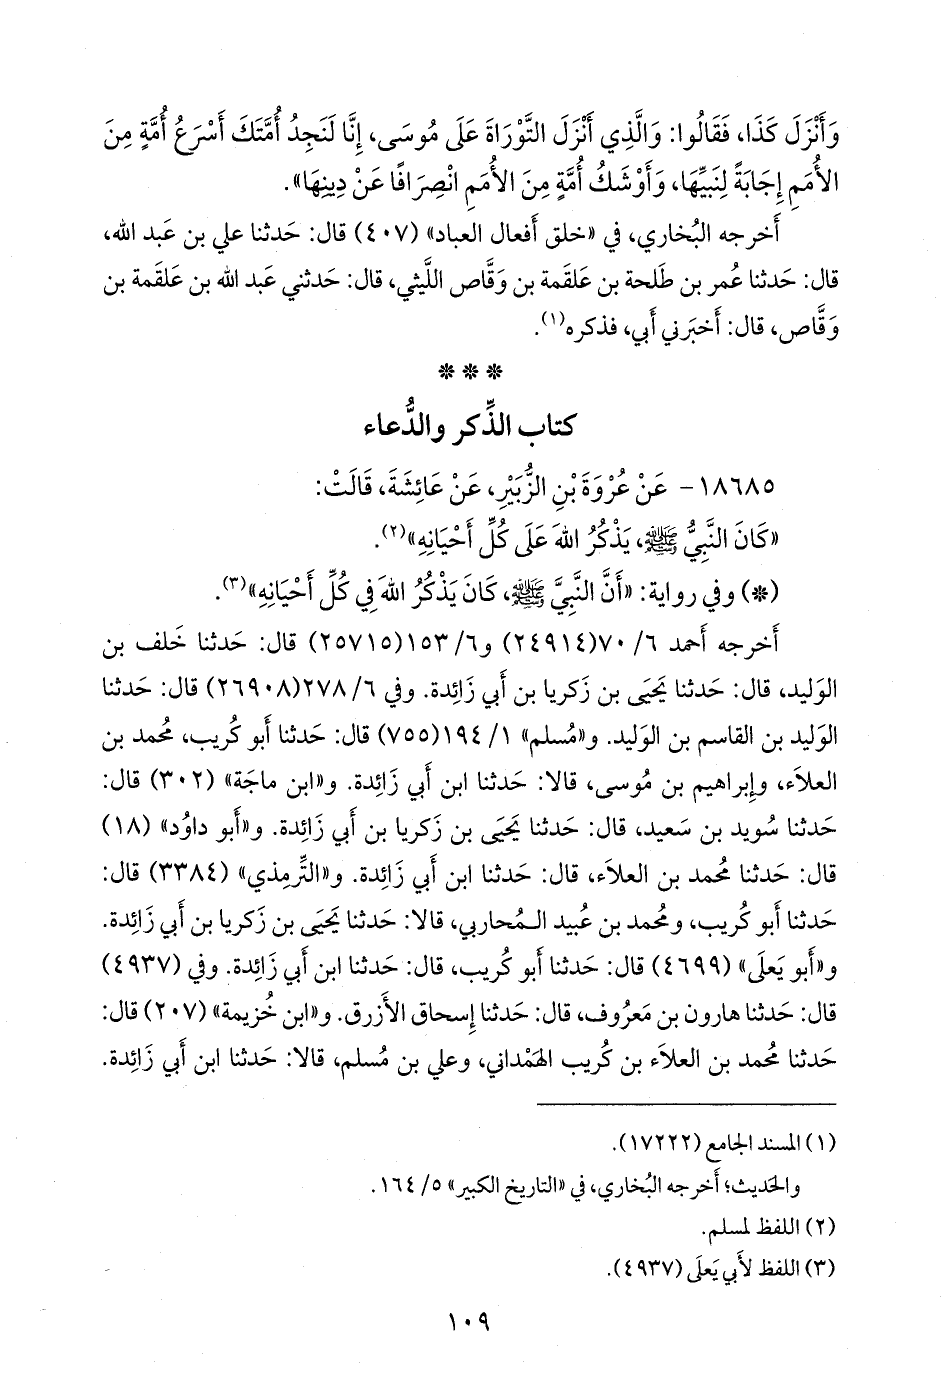 وَأَنْزَلَ كَذَا، فَقَالُوا: وَالَّذِي أَنْزَلَ التَّوْرَاةَ عَلَى مُوسَى، إِنَّا لَنَجِدُ أُمَّتَكَ أَسْرَعُ أُمَّةٍ مِنَ
الأُمَمِ إِجَابَةً لِنَبِيِّهَا، وَأَوْشَكُ أُمَّةٍ مِنَ الأُمَمِ انْصِرَافًا عَنْ دِينِهَا».
أَخرجه البُخاري، في «خلق أَفعال العباد» (٤٠٧) قال: حَدثنا علي بن عَبد الله،
قال: حَدثنا عُمر بن طَلحة بن عَلقمة بن وَقَّاص اللَّيثي، قال: حَدثني عَبد الله بن عَلقمة بن
وَقَّاص، قال: أَخبَرني أَبي، فذكره(١).
* * *
كتاب الذِّكر والدُّعاء
١٨٦٨٥ - عَنْ عُرْوَةَ بْنِ الزُّبَيْرِ، عَنْ عَائِشَةَ، قَالَتْ:
«كَانَ النَّبِيُّ ﷺ، يَذْكُرُ اللهَ عَلَى كُلِّ أَحْيَانِهِ»(٢).
(*) وفي رواية: «أَنَّ النَّبِيَّ ﷺ، كَانَ يَذْكُرُ اللهَ فِي كُلِّ أَحْيَانِهِ»(٣).
أَخرجه أَحمد ٦/ ٧٠(٢٤٩١٤) و٦/ ١٥٣(٢٥٧١٥) قال: حَدثنا خَلف بن
الوَليد، قال: حَدثنا يَحيَى بن زَكريا بن أَبي زَائِدة. وفي ٦/ ٢٧٨(٢٦٩٠٨) قال: حَدثنا
الوَليد بن القاسم بن الوَليد. و«مُسلم» ١/ ١٩٤(٧٥٥) قال: حَدثنا أَبو كُريب، مُحمد بن
العلَاء، وإِبراهيم بن مُوسى، قالا: حَدثنا ابن أَبي زَائِدة. و«ابن ماجَة» (٣٠٢) قال:
حَدثنا سُويد بن سَعيد، قال: حَدثنا يَحيَى بن زَكريا بن أَبي زَائِدة. و«أَبو داوُد» (١٨)
قال: حَدثنا مُحمد بن العلَاء، قال: حَدثنا ابن أَبي زَائِدة. و«التِّرمِذي» (٣٣٨٤) قال:
حَدثنا أَبو كُريب، ومُحمد بن عُبيد المُحاربي، قالا: حَدثنا يَحيَى بن زَكريا بن أَبي زَائِدة.
و«أَبو يَعلَى» (٤٦٩٩) قال: حَدثنا أَبو كُريب، قال: حَدثنا ابن أَبي زَائِدة. وفي (٤٩٣٧)
قال: حَدثنا هارون بن مَعرُوف، قال: حَدثنا إِسحاق الأَزرق. و«ابن خُزيمة» (٢٠٧) قال:
حَدثنا مُحمد بن العلَاء بن كُريب الهَمْداني، وعلي بن مُسلم، قالا: حَدثنا ابن أَبي زَائِدة.
(١) المسند الجامع (١٧٢٢٢).
والحَديث؛ أَخرجه البُخاري، في «التاريخ الكبير» ٥/ ١٦٤.
(٢) اللفظ لمسلم.
(٣) اللفظ لأَبي يَعلَى (٤٩٣٧).
١٠٩